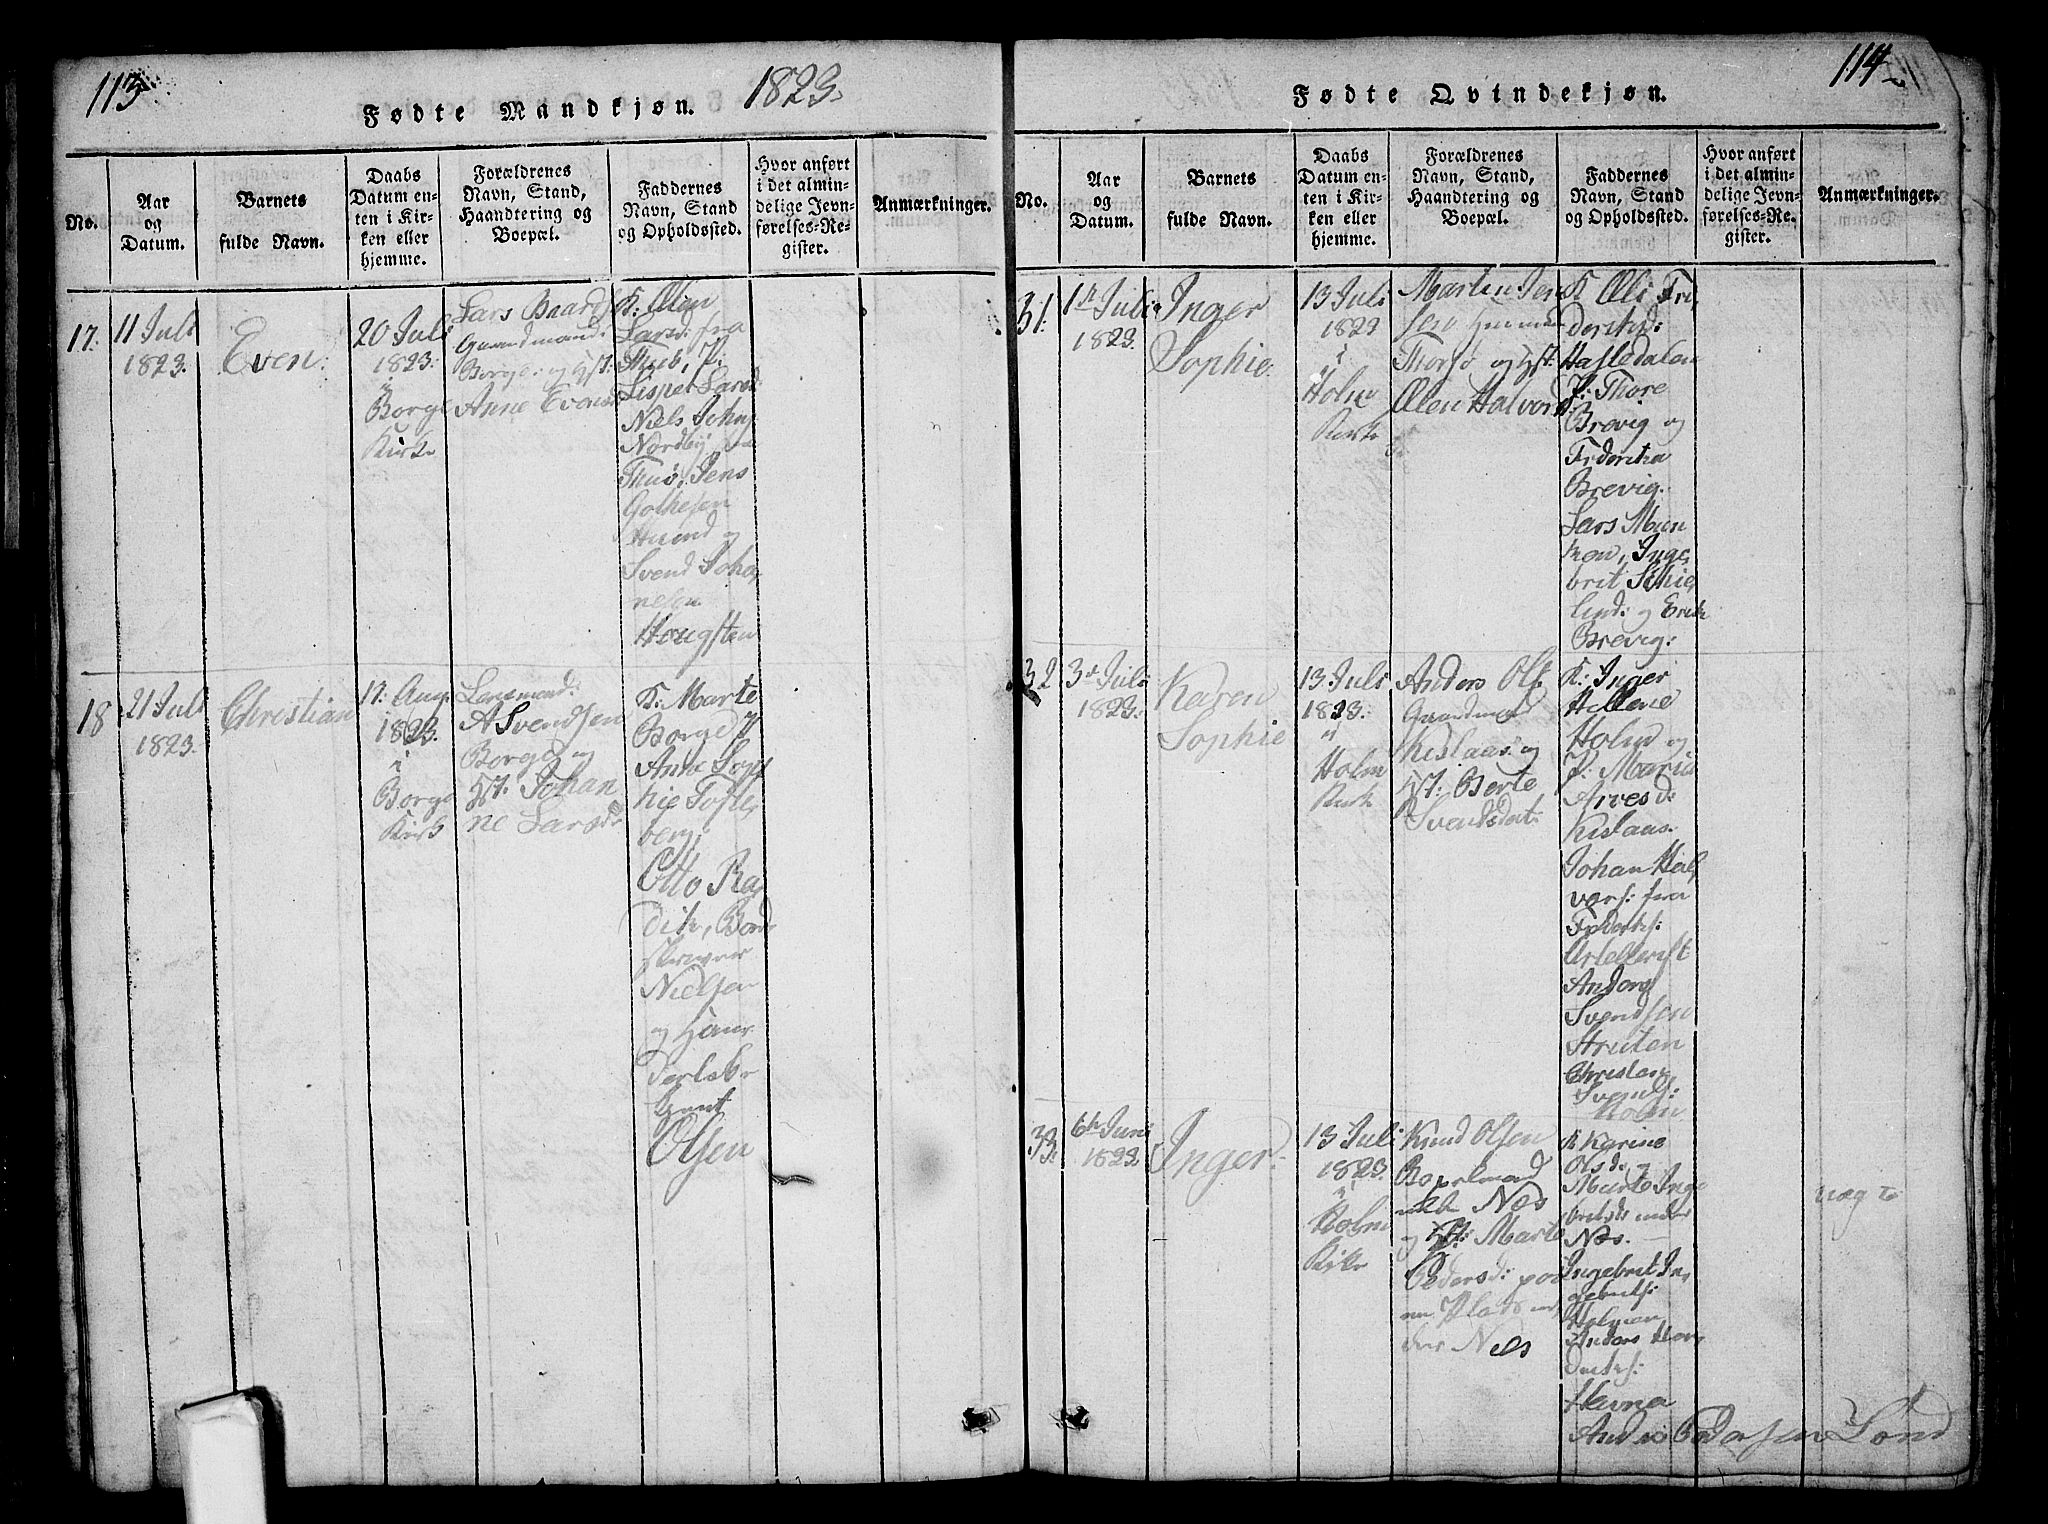 113
1823.
Fødte Mandkjøn.
No.
Aar
og
Datum.
Barnets
fulde Navn.
Daabs
Datum en-
ten i Kir-
ken eller
hjemme.
Forældrenes
Navn, Stand,
Haandtering og
Boepæl.
Faddernes
Navn, Stand
og Opholdssted.
Hvor anført
i det almin-
delige Jevn-
førelses-Re-
gister.
Anmærkninger.
17.
11 Juli
1823.
Even.
20 Juli
1823.
i
Borge
Kirke
Lars Baards
Gaardmand
Borge og Hst.
Anne Evens
K: Olen
Larsd: fra
P:
Lispet Larsd.
Niels Johns
Nordby
Thuø, Jens
og
Svend Joha,
nesen
Hougsten
18
21 Juli
1823.
Christian
17: Aug.
1823.
i
Borge
Kirk
Larsmand:
A Svendsen
Borge og
Hst. Johan
ne Larsdr
K: Marte
Borge P
Anne Sop
hie Tofte,
berg;
Otto Ra
dik, Bord
skriver
Nielsen
og
Knut
Olsen
114
Fødte Qvindekjøn.
No.
Aar
og
Datum.
Barnets
fulde Navn.
Daabs
Datum en-
ten i Kir-
ken eller
hjemme.
Forældrenes
Navn, Stand,
Haandtering og
Boepæl.
Faddernes
Navn, Stand
og Opholdssted.
Hvor anført
i det almin-
delige Jevn-
førelses-Re-
gister.
Anmærkninger.
31.
1st Juli
1823.
Inger
Sophie.
13 Juli
1823
i
Holm
Kirk
Martin Jen
sen
Thorsø og Hst.
Olen Halvord.
K Oli Fri
derichs:
Hasledalen
P: Thore
Brevig og
Frderika
Brevig.
Lars Mun
ken, Inge,
brit Schie,
lind: og Erik
Brevig:
32
3de Juli
1823.
Karen
Sophie
13 Juli
1823.
i
Holm
Kirk
Anders Ols.
Gaardmd
Kislaas og
Hst. Berte
Svendsdat.
K: Inger
Hellene
Holm og
P: Maria
Arvesd:
Kislaas.
Johan Hal,
vors: fra
Frderiks:
Anders
Svendsen
Struten
Christian
Svends:
Holm
33.
6te Juni
1823
Inger.
13 Juli
1823
i
Holm
Kirke
Knud Olsen
Næs
og Hst: Marte
Pedersd: paa
en Plads un,
der Næs
K Karine
Olsd: og
Marte Inge
britsd: under
Næs.
Ingebrit In,
gebrits:
Holmen
Anders
Havna
Anders Pedersen Lønd